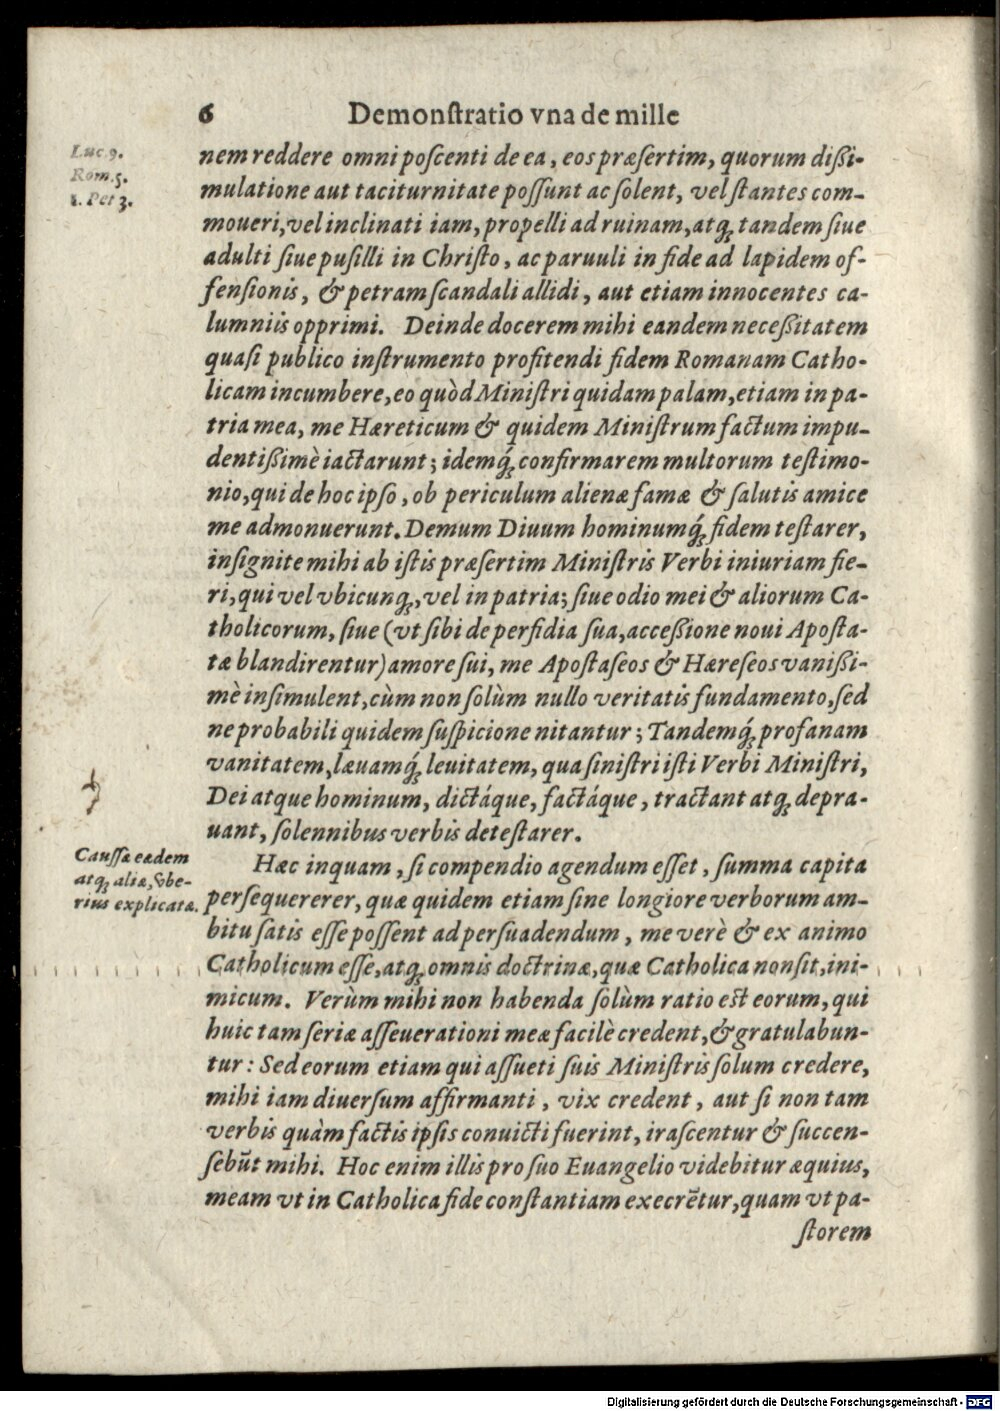 6 Demonſtratio vna de mille
Luc. 9.
Rom. 5.
1. Pet 3.
nem reddere omni poſcenti de ea, eos præſertim, quorum dißi-
mulatione aut taciturnitate poſſunt ac ſolent, vel ſtantes com-
moueri, vel inclinati iam, propelli ad ruinam, atq́ꝫ tandem ſiue
adulti ſiue puſilli in Chriſto, ac paruuli in fide ad lapidem of-
fenſionis, & petram ſcandali allidi, aut etiam innocentes ca-
lumniis opprimi. Deinde docerem mihi eandem neceßitatem
quaſi publico inſtrumento profitendi fidem Romanam Catho-
licam incumbere, eo quòd Miniſtri quidam palam, etiam in pa-
tria mea, me Hæreticum & quidem Miniſtrum factum impu-
dentißimè iactarunt; idemq́ꝫ confirmarem multorum teſtimo-
nio, qui de hoc ipſo, ob periculum alienæ famæ & ſalutis amice
me admonuerunt. Demum Diuum hominumq́ꝫ fidem teſtarer,
inſignite mihi ab iſtis præſertim Miniſtris Verbi iniuriam fie-
ri, qui vel vbicunqꝫ, vel in patria; ſiue odio mei & aliorum Ca-
tholicorum, ſiue (vt ſibi de perfidia ſua, acceßione noui Apoſta-
tæ blandirentur) amore ſui, me Apoſtaſeos & Hæreſeos vanißi-
mè inſimulent, cùm non ſolùm nullo veritatis fundamento, ſed
ne probabili quidem ſuſpicione nitantur; Tandemq́ꝫ profanam
vanitatem, læuamq́ꝫ leuitatem, qua ſiniſtri iſti Verbi Miniſtri,
Dei atque hominum, dictáque, factáque, tractant atqꝫ depra-
uant, ſolennibus verbis deteſtarer.
Cauſſæ eædem
atqꝫ aliæ, vbe-
rius explicatæ.
Hæc inquam, ſi compendio agendum eſſet, ſumma capita
perſequererer, quæ quidem etiam ſine longiore verborum am-
bitu ſatis eſſe poſſent ad perſuadendum, me verè & ex animo
Catholicum eſſe, atqꝫ omnis doctrinæ, quæ Catholica non ſit, ini-
micum. Verùm mihi non habenda ſolùm ratio eſt eorum, qui
huic tam ſeriæ aſſeuerationi meæ facilè credent, & gratulabun-
tur: Sed eorum etiam qui aſſueti ſuis Miniſtris ſolum credere,
mihi iam diuerſum affirmanti, vix credent, aut ſi non tam
verbis quàm factis ipſis conuicti fuerint, iraſcentur & ſuccen-
ſebūt mihi. Hoc enim illis pro ſuo Euangelio videbitur æquius,
meam vt in Catholica fide conſtantiam execrētur, quam vt pa-
ſtorem
Digitalisierung gefördert durch die Deutsche Forschungsgemeinschaft - DFG